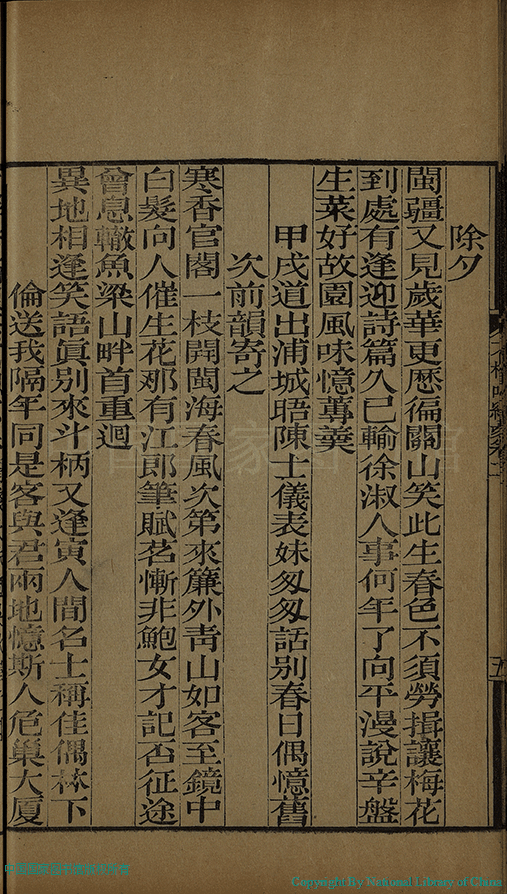 除夕
閩疆又見歲華更歷徧關山笑此生春色不須勞揖讓梅花
到處有逢迎詩篇久已輸徐淑人事何年了向平漫說辛盤
生菜好故園風味憶蓴羮
甲戌道出浦城晤陳士儀表妹匆匆話別春日偶憶舊
次前韻寄之
寒香官閣一枝開閩海春風次第來簾外靑山如客至鏡中
白髮向人催生花那有江郎筆賦茗慚非鮑女才記否征途
曾息轍魚梁山畔首重迴
異地相逢笑語眞別來斗柄又逢寅人間名士稱佳偶林下
倫送我隔年同是客與君兩地憶斯人危巢大厦
五
Copyright By National Library of China